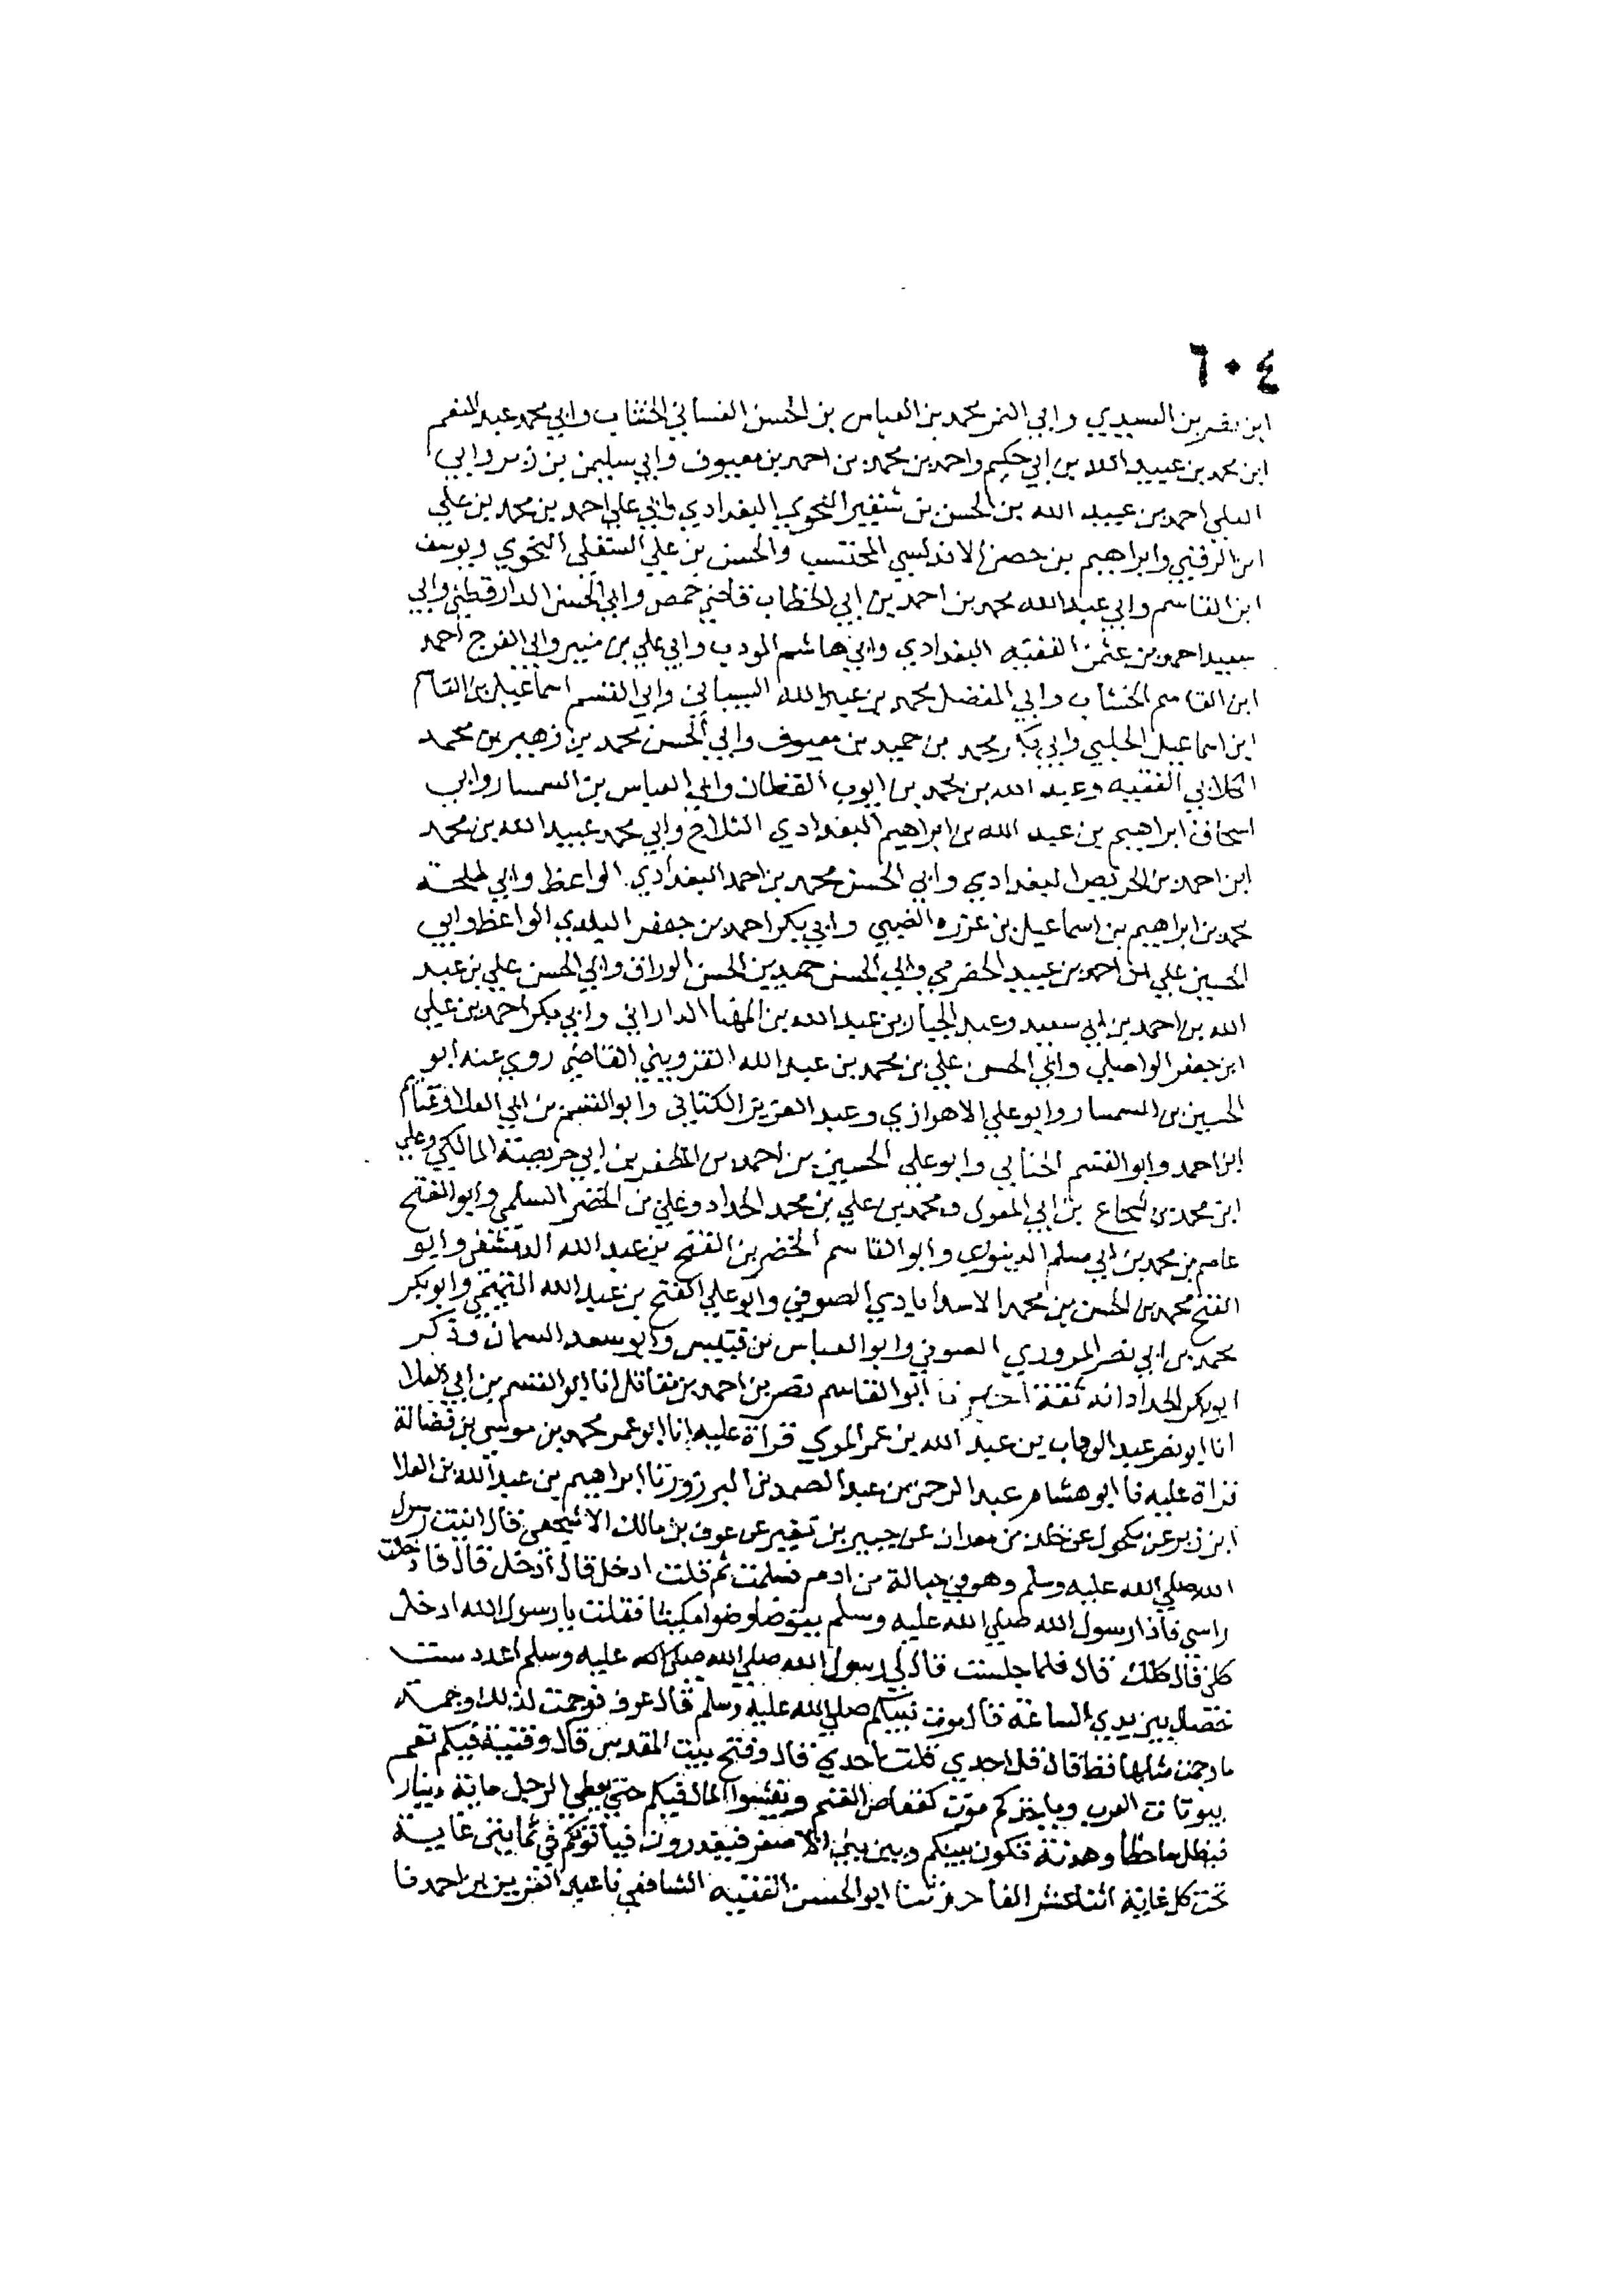 ٦٠٤
ابن نصر بن السيدي وابي النمر محمد بن العباس بن الحسن الغساني الخشاب وابي محمد عبد المنعم
ابن محمد بن عبيد الله بن ابي حكيم واحمد بن محمد بن احمد بن معيوف وابي سليمن بن زبر وابي
العلي احمد بن عبيد الله بن الحسن بن شقير النحوي البغدادي وابي علي احمد بن محمد بن علي
ابن الزفتي وابراهيم بن حصن الاندلسي المحتسب والحسن بن علي السقلي النحوي ويوسف
ابن القاسم وابي عبد الله محمد بن احمد بن ابي الخطاب قاضي حمص وابي الحسن الدارقطني وابي
سعيد احمد بن عثمن الفقيه البغدادي وابي هاشم المودب وابي علي بن منير وابي الفرج احمد
ابن القاسم الخشاب وابي المفضل محمد بن عبد الله الشيباني وابي القسم اسماعيل بن القاسم
ابن اسماعيل الحلبي وابي بكر محمد بن حميد بن معيوف وابي الحسن محمد بن زهير بن محمد
الكلابي الفقيه وعبد الله بن محمد بن ايوب القطان وابي العباس بن السمسار وابي
اسحاق ابراهيم بن عبد الله بن ابراهيم البغدادي الثلاج وابي محمد عبيد الله بن محمد
ابن احمد بن الحريص البغدادي وابي الحسن محمد بن احمد البغدادي الواعظ وابي طلحة
محمد بن ابراهيم بن اسماعيل بن عزره الضبي وابي بكر احمد بن جعفر البلدي الواعظ وابي
الحسين علي بن احمد بن عبيد الحضرمي وابي الحسن حميد بن الحسن الوراق وابي الحسن علي بن عبد
الله بن احمد بن ابي سعيد وعبد الجبار بن عبد الله بن المهنا الداراني وابي بكر احمد بن علي
ابن جعفر الواصلي وابي الحسن علي بن محمد بن عبد الله القزويني القاضي روي عنه ابو
الحسين بن السمسار وابو علي الاهوازي وعبد العزيز الكتاني وابو القسم بن ابي العلا وغنام
ابن احمد وابو القسم الحنابي وابو علي الحسين بن احمد بن المظفر بن ابي حريصة المالكي وعلي
ابن محمد بن شجاع بن ابي الهول ومحمد بن علي بن محمد الحداد وعلي بن الخضر السلمي وابو الفتح
عاصم بن محمد بن ابي مسلم الدينوري وابو القاسم الخضر بن الفتح بن عبد الله الدمشقي وابو
الفتح محمد بن الحسن بن محمد الاسدابادي الصوفي وابو علي الفتح بن عبد الله التميمي وابو بكر
محمد بن ابي نصر المروروي الصوفي وابو العباس بن قبيس وابو سعد السمان وذكر
ابو بكر الحداد انه ثقة اخبرنا ابو القاسم نصر بن احمد بن مقاتل انا ابو القسم بن ابي العلا
انا ابو نصر عبد الوهاب بن عبد الله بن عمر المري قراة عليه انا ابو عمر محمد بن موسي بن فضالة
قراة عليه نا ابو هشام عبد الرحمن بن عبد الصمد بن البرزوزنا ابراهيم بن عبد الله بن العلا
ابن زبر عن مكحول عن خلد بن معدان عن جبير بن نفير عن عوف بن مالك الاشجعي قال اتيت رسول
الله صلي الله عليه وسلم وهو في جبالة من ادم فسلمت ثم قلت ادخل قال ادخل قال فادخلت
راسي فاذا رسول الله صلي الله عليه وسلم يتوضا وضوا مكيثا فقلت يا رسول الله ادخل
كلي قال كلك قال فلما جلست قال لي رسول الله صلي الله صلي الله عليه وسلم اعدد ست
خصال بين يدي الساعة قال موت نبيكم صلي الله عليه وسلم قال عوف فوجمت لذلك وجمة
ما وجمت مثلها قط قال قل احدي قلت احدي قال وفتح بيت المقدس قال وفتنة فيكم تعم
بيوتات العرب وياخذكم موت كقعاص الغنم ويفشوا المال فيكم حتي يعطي الرجل ماية دينار
فيظل ساخطا وهدنة تكون بينكم وبين بني الاصفر فيغدرون فياتوكم في ثمانين غاية
تحت كل غاية اثنا عشر الفا حدثنا ابو الحسن الفقيه الشافعي نا عبد العزيز بن احمد نا